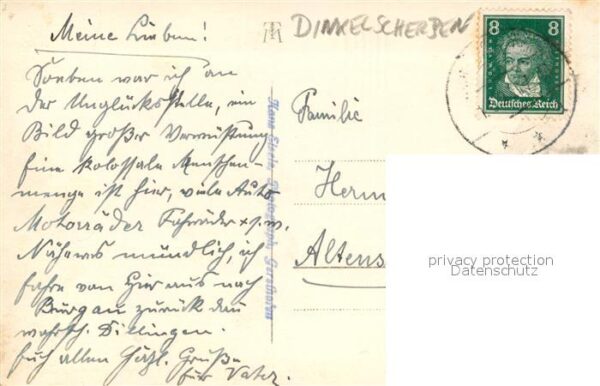 Meine Lieben!
Soeben war ich an
der Unglücksstelle, ein
Bild großer Verwüstung
Eine kolossale Menschen-
menge ist hier, viele Auto
Motorräder Fahrräder u.s.w.
Näheres mündlich, ich
fahre von hier aus nach
Burgau zurück dan
wahrsch. Dillingen.
Euch allen herzl. Grüße
für Vater.
DINKELSCHERBEN
8 8
Deutsches Reich
Photograph, Gersthofen
Familie
Herm
Altens
privacy protection
Datenschutz